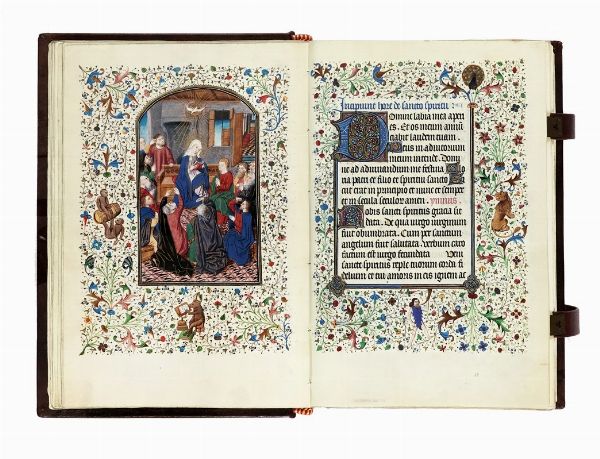 Incipiunt hore de sancto spiritu
Domine labia mea aperi
es. Et os meum annū
tiabit laudem tuam.
Deus in adiutorium
meum intende. Domi
ne ad adiuvandum me festina Glo
ria patri et filio et spiritui sancto
Sicut erat in principio et nunc et semper
et in secula seculorum amen. ymnus.
Nobis sancti spiritus gratia sit
data. De qua virgo virginum
fuit obumbrata. Cum per sanctum
angelum fuit salutata Verbum caro
factum est virgo fecundata Veni
sancte spiritus reple tuorum corda fi
delium et tui amoris in eis ignem ac